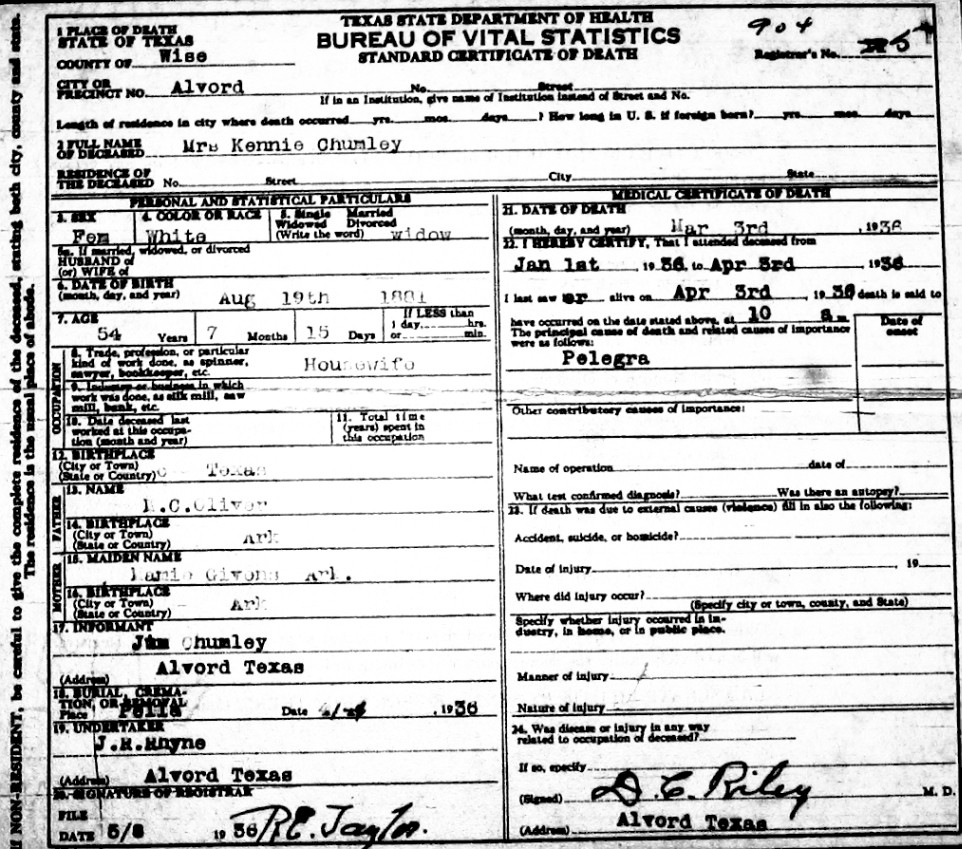 TEXAS STATE DEPARTMENT OF HEALTH
BUREAU OF VITAL STATISTICS
STANDARD CERTIFICATE OF DEATH
904
Registrar's No.
1 PLACE OF DEATH
STATE OF TEXAS
COUNTY OF Wise
CITY OR
PRECINCT NO. Alvord No. Street
If in an Institution, give name of Institution instead of Street and No.
Length of residence in city where death occurred yrs. mos. days ? How long in U. S. if foreign born? yrs. mos. days
2 FULL NAME
OF DECEASED Mrs Kennie Chumley
RESIDENCE OF
THE DECEASED No. Street City State
PERSONAL AND STATISTICAL PARTICULARS
3. SEX 4. COLOR OR RACE 5. Single Married
Widowed Divorced
(Write the word) widow
Fem White
5a. If married, widowed, or divorced
HUSBAND of
(or) WIFE of
6. DATE OF BIRTH
(month, day, and year) Aug 19th 1881
7. AGE If LESS than
1 day, hrs.
54 Years 7 Months 15 Days or min.
OCCUPATION
8. Trade, profession, or particular
kind of work done, as spinner,
sawyer, bookkeeper, etc. Housewife
9. Industry or business in which
work was done, as silk mill, saw
mill, bank, etc.
10. Date deceased last
worked at this occupa-
tion (month and year)
11. Total time
(years) spent in
this occupation
12. BIRTHPLACE
(City or Town)
(State or Country) Texas
FATHER
13. NAME
.C.Oliver
14. BIRTHPLACE
(City or Town)
(State or Country) Ark
MOTHER
15. MAIDEN NAME
Givons Ark.
16. BIRTHPLACE
(City or Town)
(State or Country) Ark
17. INFORMANT
Jim Chumley
(Address) Alvord Texas
18. BURIAL, CREMA-
TION, OR REMOVAL
Place Pella Date 4/ , 1936
19. UNDERTAKER
J.R.Rhyne
(Address) Alvord Texas
20. SIGNATURE OF REGISTRAR
FILE
DATE 5/8 1936 R.E. Taylor.
MEDICAL CERTIFICATE OF DEATH
21. DATE OF DEATH
(month, day, and year) Mar 3rd , 1936
22. I HEREBY CERTIFY, That I attended deceased from
Jan 1st 1936, to Apr 3rd 1936
I last saw er alive on Apr 3rd , 1936 death is said to
have occurred on the date stated above, at 10 a m.
The principal cause of death and related causes of importance
were as follows:
Date of
onset
Pelegra
Other contributory causes of importance:
Name of operation date of
What test confirmed diagnosis? Was there an autopsy?
23. If death was due to external causes (violence) fill in also the following:
Accident, suicide, or homicide?
Date of injury , 19
Where did injury occur?
(Specify city or town, county, and State)
Specify whether injury occurred in in-
dustry, in home, or in public place.
Manner of injury
Nature of injury
24. Was disease or injury in any way
related to occupation of deceased?
If so, specify
(Signed) D. C. Riley M. D.
(Address) Alvord Texas
If NON-RESIDENT, be careful to give the complete residence of the deceased, stating both city, county and state.
The residence is the usual place of abode.